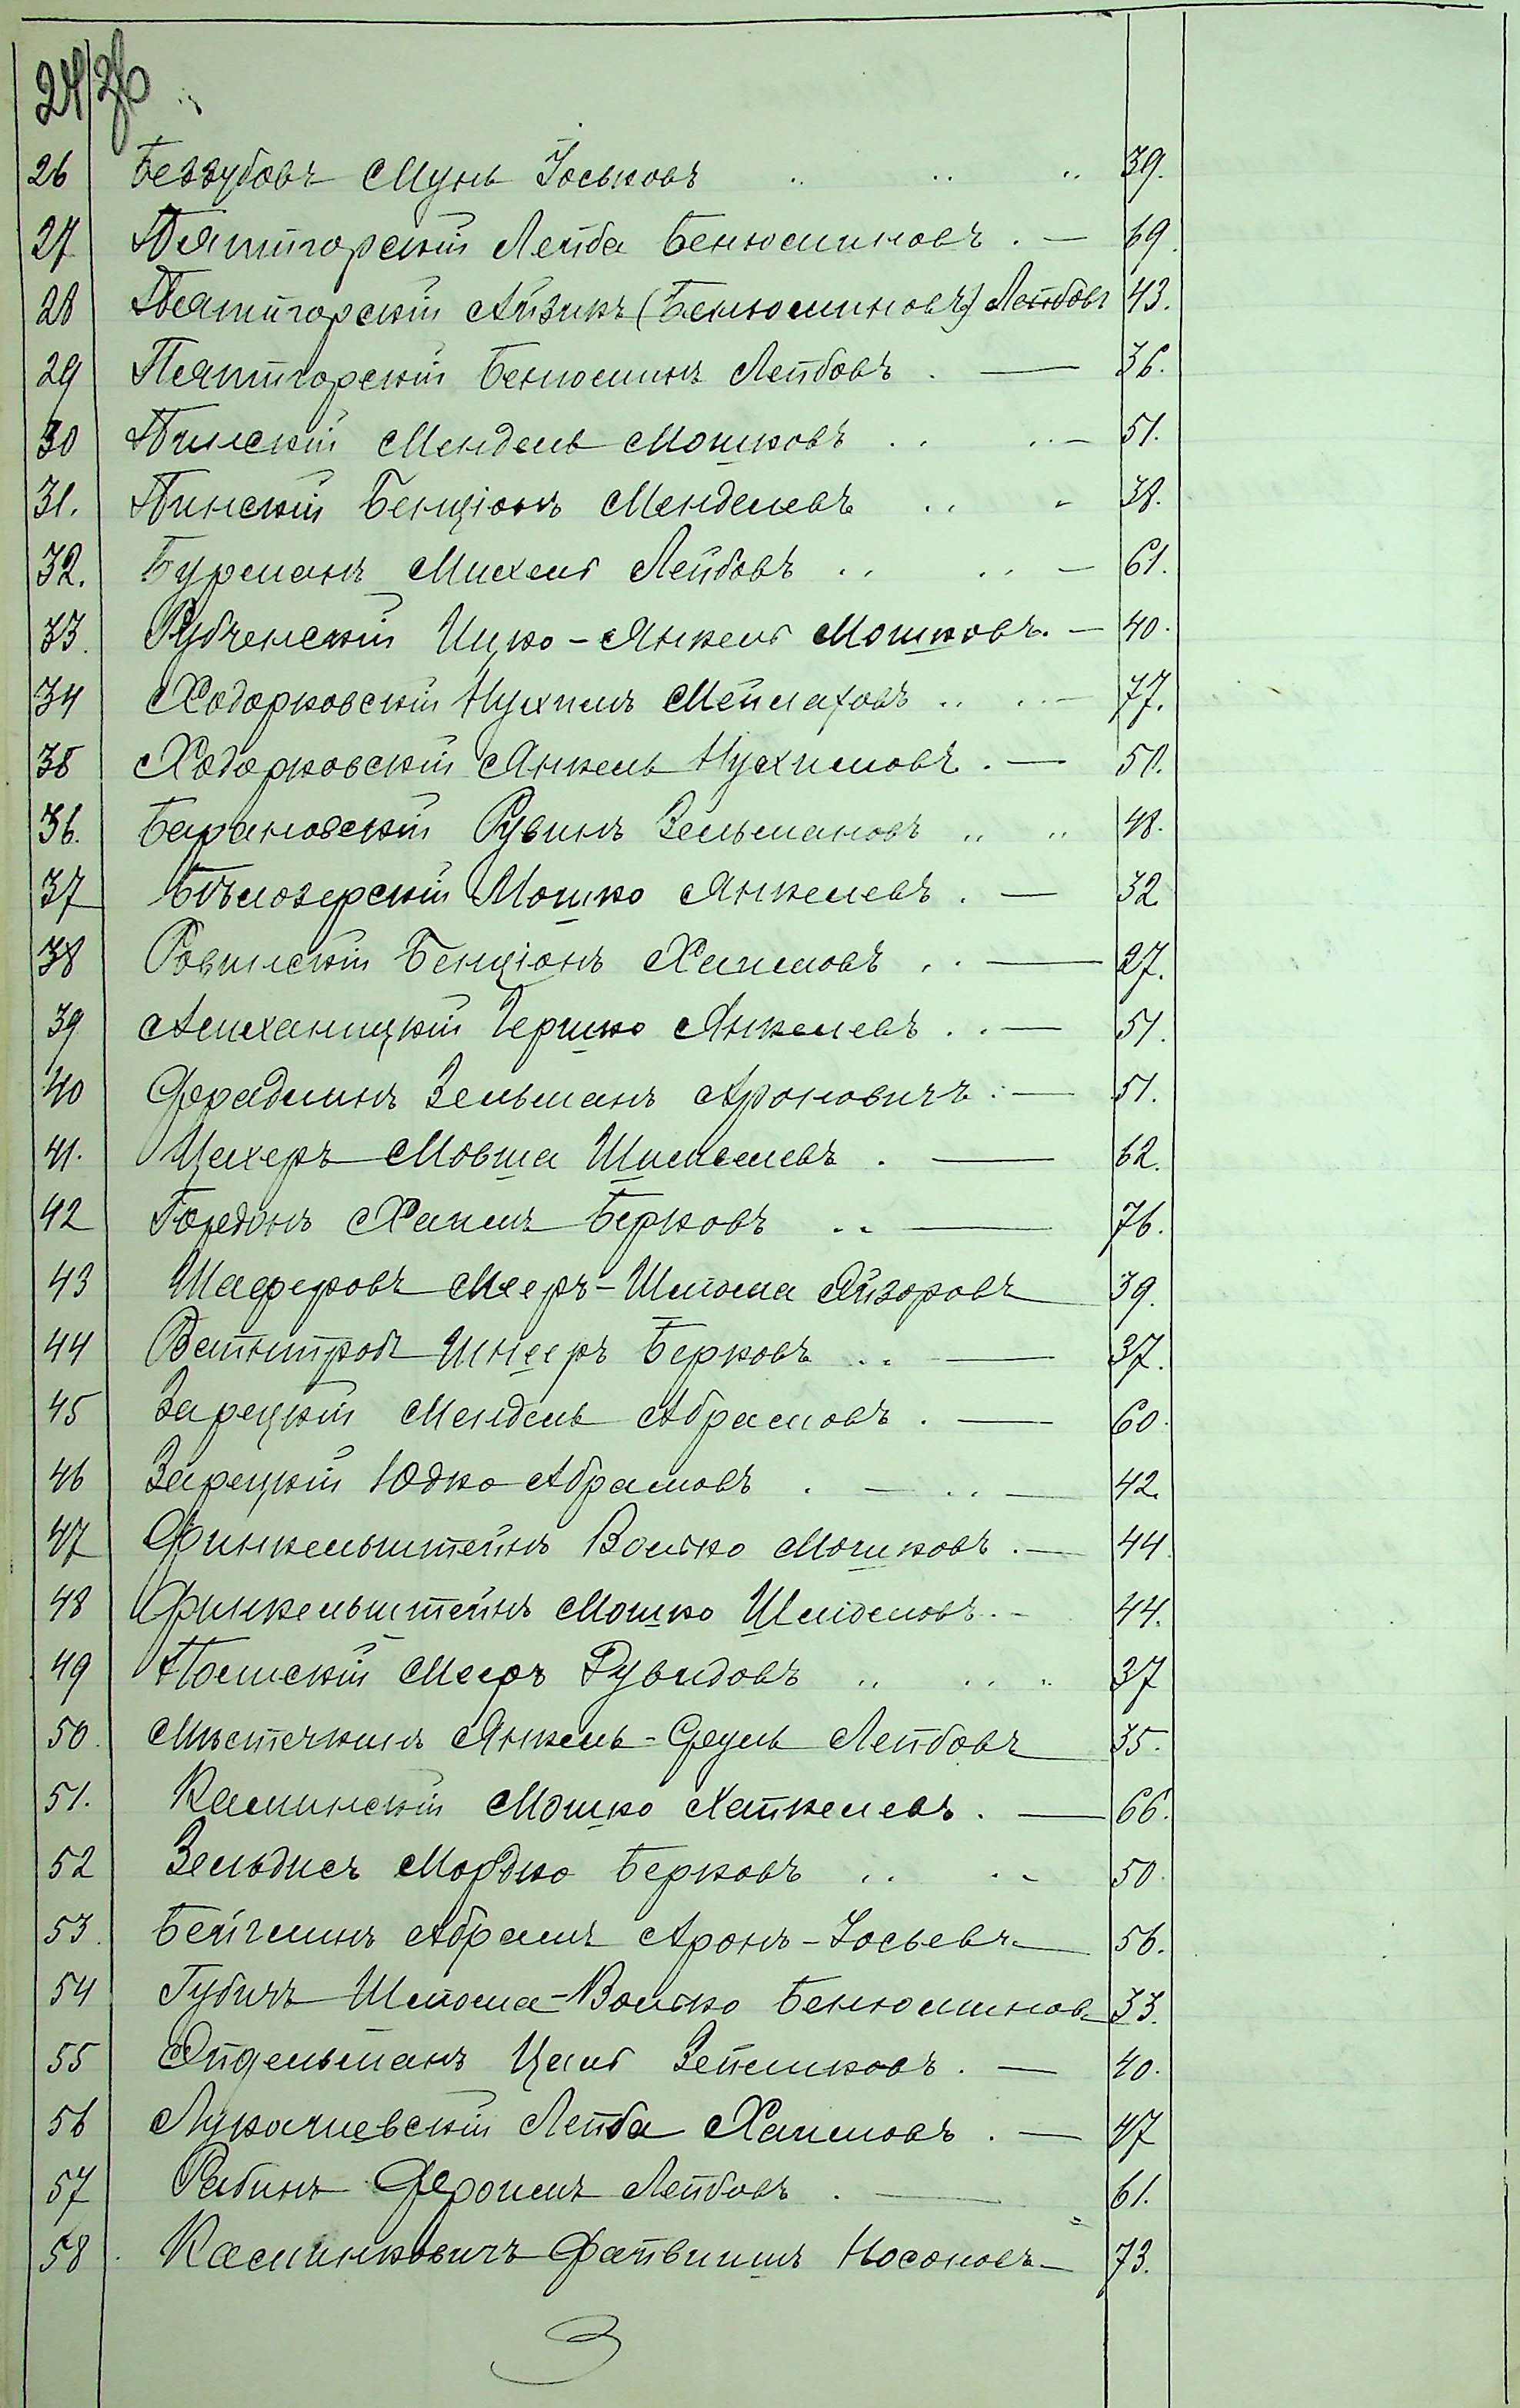 24/26
26 Беззубовъ Мунь Іоськовъ 39.
27 Пятигорскій Лейба Бенюминовъ. — 69.
28 Пятигорскій Айзикъ (Бенюминовъ) Лейбовъ 43.
29 Пятигорскій Бенюминъ Лейбовъ. — 36.
30 Пинскій Мендель Мошковъ .. .. — 51.
31. Пинскій Бенціонъ Менделевъ .. - 38.
32. Бурманъ Михель Лейбовъ .. .. — 61.
33. Рубченскій Ицко-Янкель Мошковъ. — 40.
34 Ходорковскій Нухимъ Мейлаховъ .. .. — 77.
35 Ходорковскій Янкель Нухимовъ. — 50.
36. Барановскій Рувинъ Зельмановъ „ „ 48.
37 Бѣлозерскій Мошко Янкелевъ. — 32.
38 Ровинскій Бенціонъ Хаимовъ .. — 27.
39 Асиханицкій Гершко Янкелевъ .. — 51.
40 Фрадлинъ Зельманъ Ароновичъ. — 51.
41. Цахеръ Мовша Шмилевъ. — 62.
42 Гордонъ Хаимъ Берковъ .. — 76.
43 Шаферовъ Мееръ-Шлома Айзоровъ 39.
44 Вайнтробъ Шнееръ Берковъ .. — 37.
45 Зарецкій Мендель Абрамовъ. — 60.
46 Зарецкій Юдко Абрамовъ. — .. — 42.
47 Финкельштейнъ Волько Мошковъ. — 44
48 Финкельштейнъ Мошко Шліомовъ. - 44.
49 Полискій Мееръ Дувидовъ .. .. .. 37
50. Мѣстечкинъ Янкель-Сруль Лейбовъ 35.
51. Каминскій Мошко Хайкелевъ. — 66.
52 Зельдисъ Мордко Берковъ .. .. 50.
53. Бейглинъ Абрамъ Аронъ-Іосьевъ 56.
54 Губичъ Шлома-Волько Бенюминов. 33.
55 Эйдельманъ Цаль Зейликовъ. — 40.
56 Лукачиевскій Лейба Хаимовъ. — 47
57 Рабинъ Фроимъ Лейбовъ. — 61.
58. Каминковичъ Файвишъ Носоновъ — 73.
3